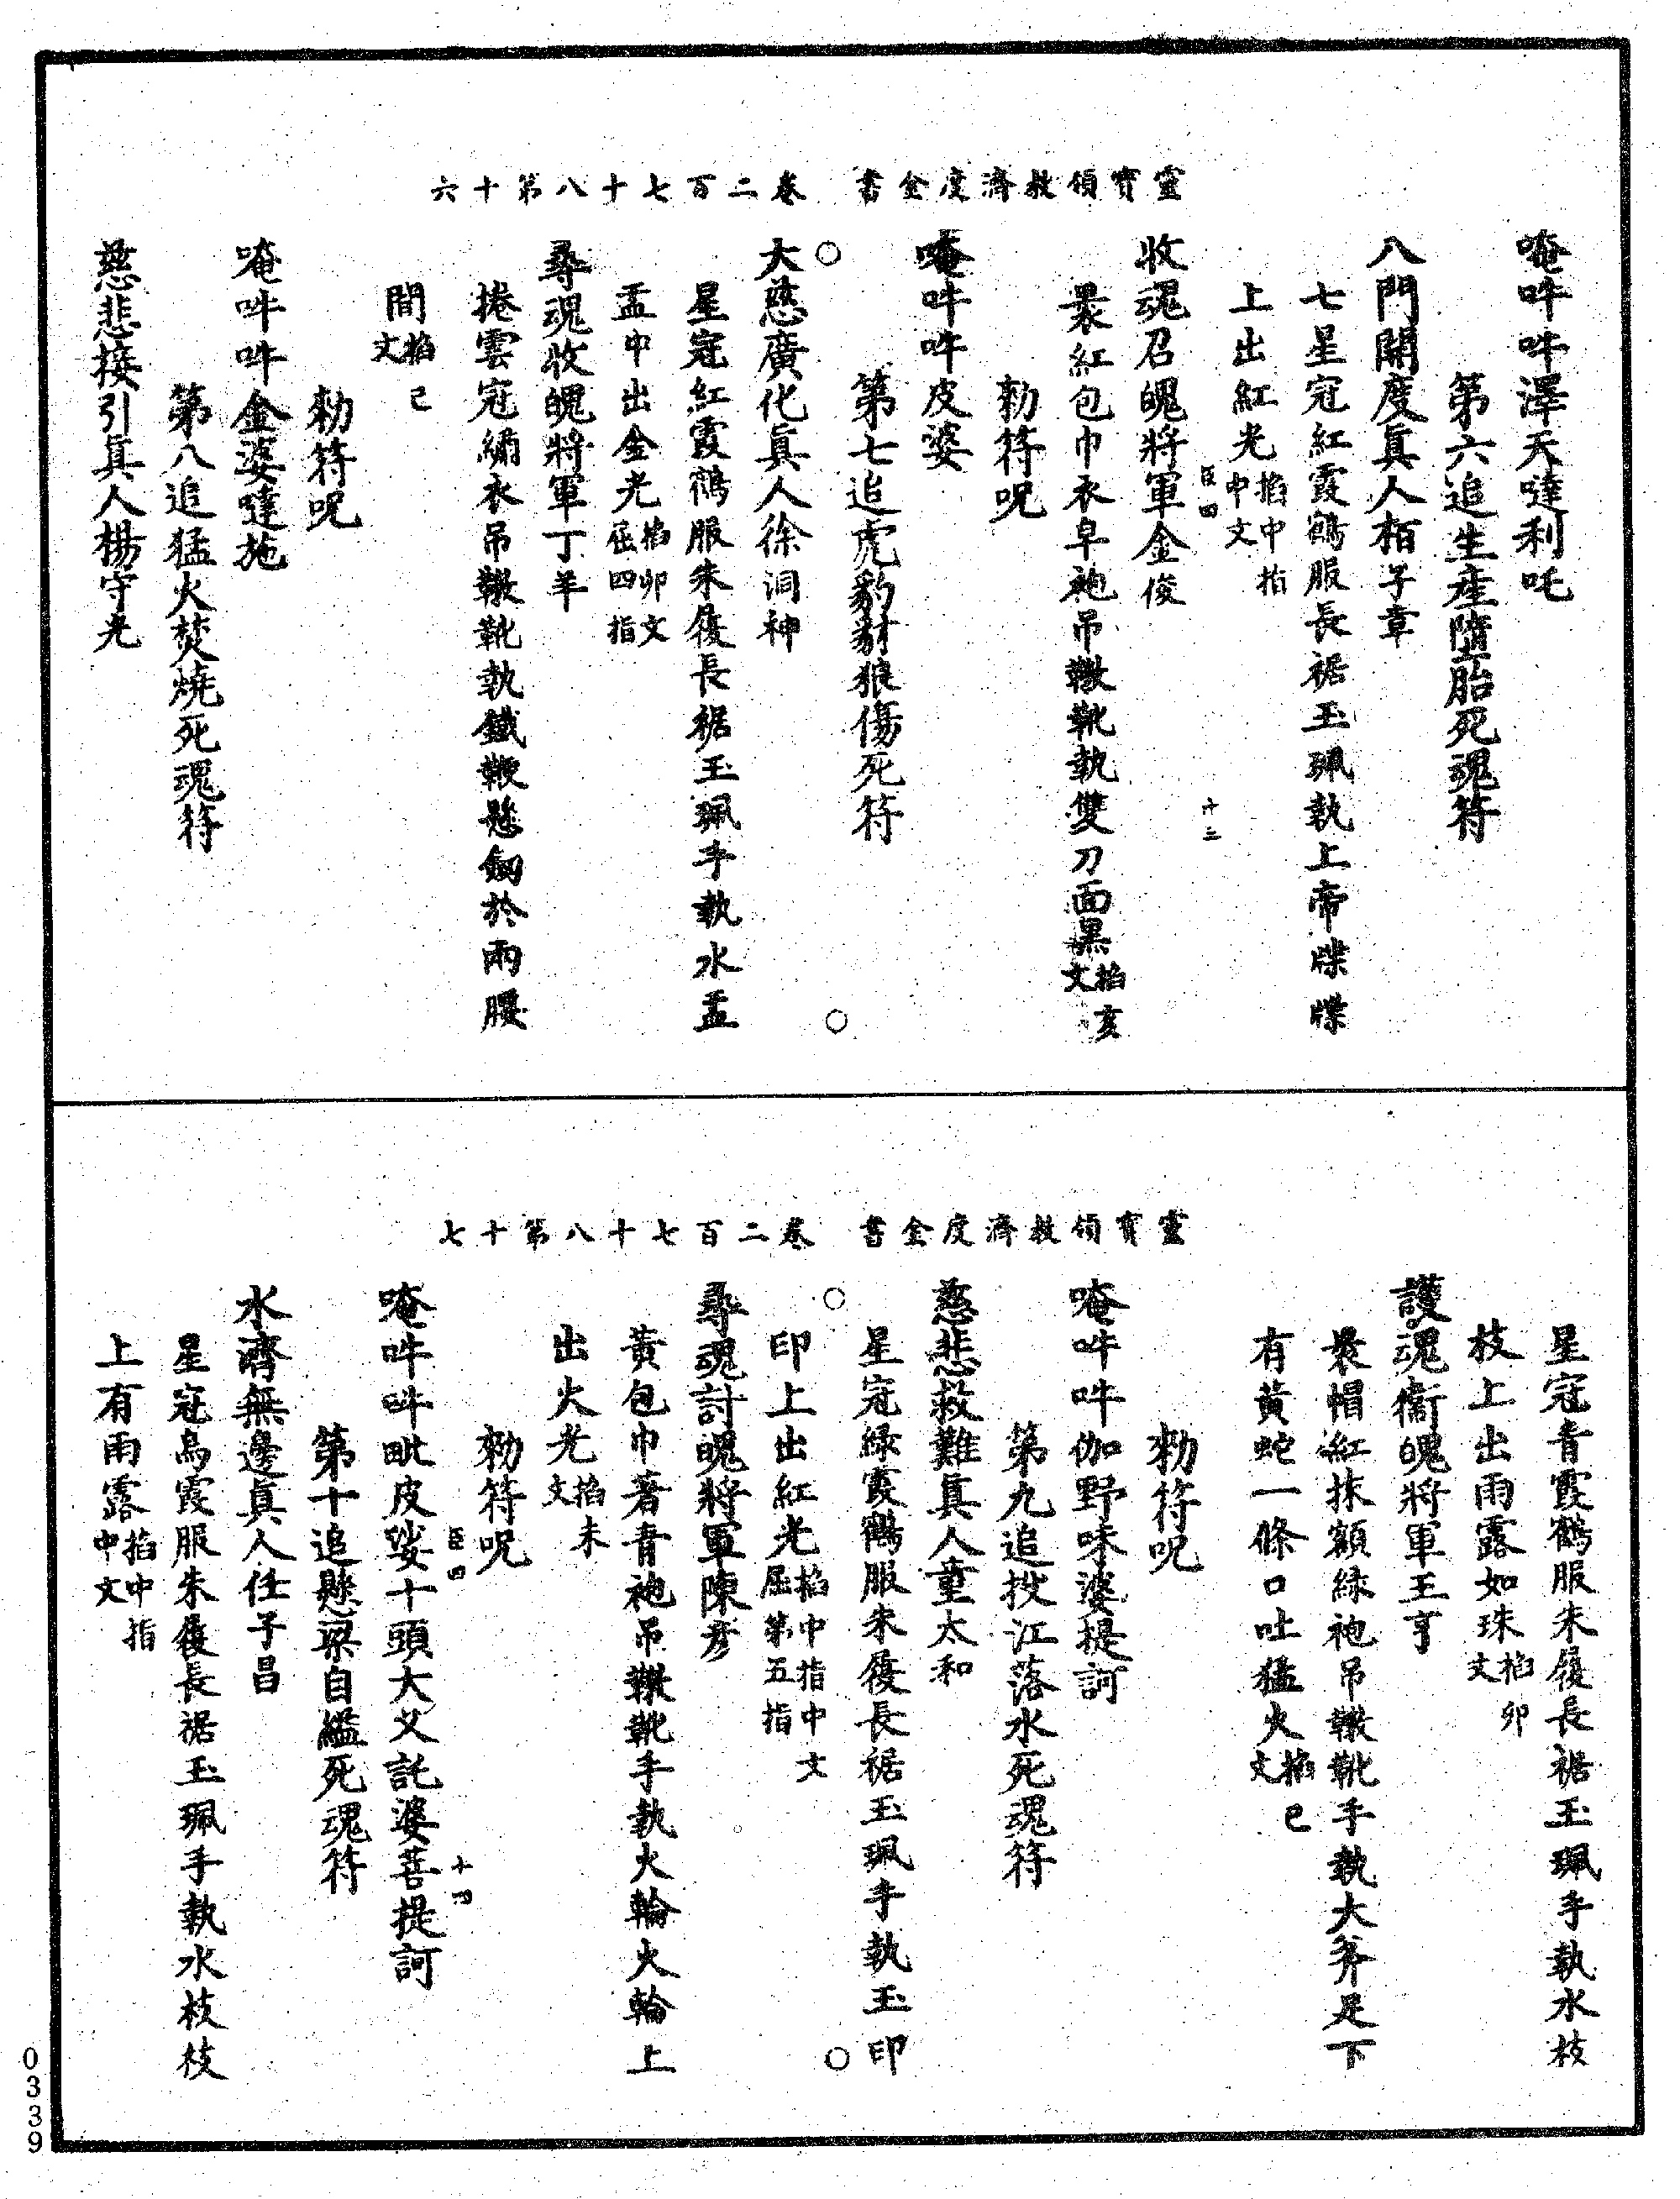 靈寶領教濟度金書　卷二百七十八第十六
唵吽吽澤天噠利吒
第六追生產墮胎死魂符
八門開度眞人栢子章
七星冠紅霞鶴服長裾玉珮執上帝牒牒
上出紅光掐中指中文
臣四　十三
收魂召魄將軍金俊
裹紅包巾衣皁袍吊𩍐靴執雙刀面黑掐亥文
勑符呪
唵吽吽皮婆
第七追虎豹豺狼傷死符
○　○
大慈廣化眞人徐洞神
星冠紅霞鶴服朱履長裾玉珮手執水盂
盂中出金光掐卯文屈四指
尋魂收魄將軍丁羊
捲雲冠繡衣吊𩍐靴執鐵鞭懸劒於兩腰
間掐巳文
勑符呪
唵吽吽金婆噠施
第八追猛火焚燒死魂符
慈悲接引眞人楊守光
靈寶領教濟度金書　卷二百七十八第十七
星冠青霞鶴服朱履長裾玉珮手執水枝
枝上出雨露如珠掐卯文
護魂衞魄將軍王亨
裹帽紅抹額綠袍吊𩍐靴手執大斧足下
有黃蛇一條口吐猛火掐巳文
勑符呪
唵吽吽伽野味婆提訶
第九追投江落水死魂符
慈悲救難眞人童太和
星冠綠霞鶴服朱履長裾玉珮手執玉印
○　○
印上出紅光掐中指中文屈第五指
尋魂討魄將軍陳彥
黃包巾著青袍吊𩍐靴手執火輪火輪上
出火光掐未文
勑符呪
臣四　十四
唵吽吽毗皮娑十頭大父託婆菩提訶
第十追懸梁自縊死魂符
水濟無邊眞人任子昌
星冠鳥霞服朱履長裾玉珮手執水枝枝
上有雨露掐中指中文
0339